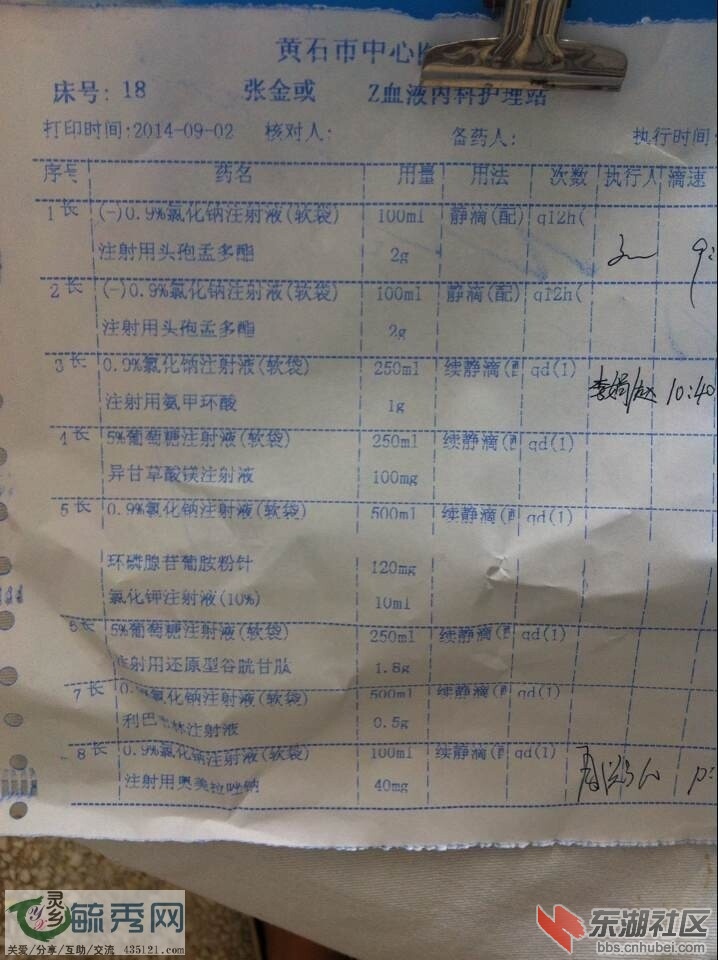 黄石市中心
床号: 18 张金或 Z血液内科护理站
打印时间:2014-09-02 核对人: 备药人: 执行时间
序号 药名 用量 用法 次数 执行人 滴速
1 长 (-)0.9%氯化钠注射液(软袋) 100ml 静滴(配) q12h(
注射用头孢孟多酯 2g
2 长 (-)0.9%氯化钠注射液(软袋) 100ml 静滴(配) q12h(
注射用头孢孟多酯 2g
3 长 0.9%氯化钠注射液(软袋) 250ml 续静滴(配 qd(1)
注射用氨甲环酸 1g 10:40
4 长 5%葡萄糖注射液(软袋) 250ml 续静滴(配 qd(1)
异甘草酸镁注射液 100mg
5 长 0.9%氯化钠注射液(软袋) 500ml 续静滴(配 qd(1)
环磷腺苷葡胺粉针 120mg
氯化钾注射液(10%) 10ml
6 长 5%葡萄糖注射液(软袋) 250ml 续静滴(配 qd(1)
注射用还原型谷胱甘肽 1.8g
7 长 0.9%氯化钠注射液(软袋) 500ml 续静滴(配 qd(1)
利巴韦林注射液 0.5g
8 长 0.9%氯化钠注射液(软袋) 100ml 续静滴(配 qd(1)
注射用奥美拉唑钠 40mg
灵乡
毓秀网
关爱/分享/互助/交流 435121.com
东湖社区
bbs.cnhubei.com